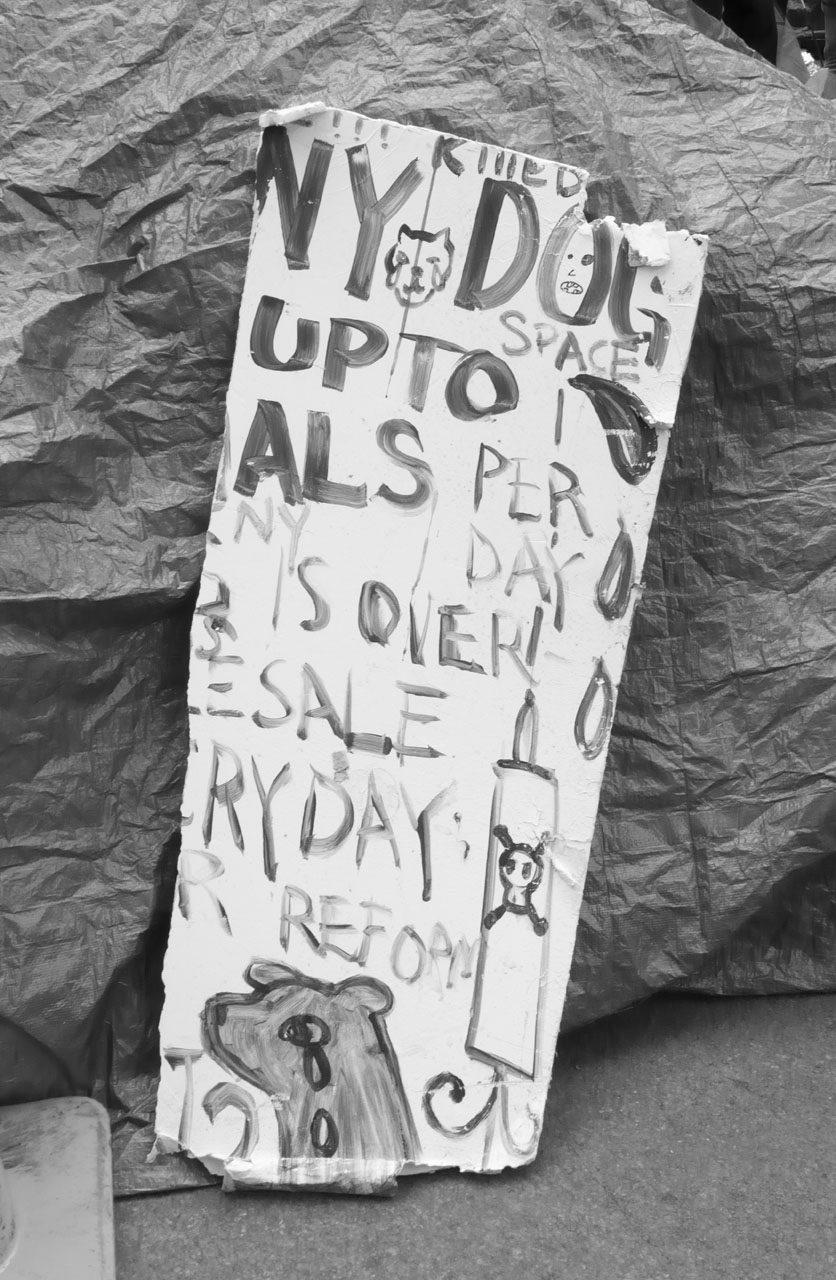 !!! KIllED
NY DOG
SPACE
UPTO
ALS PER
NY DAY
IS OVER!
ESALE
RYDAY
R REFORM